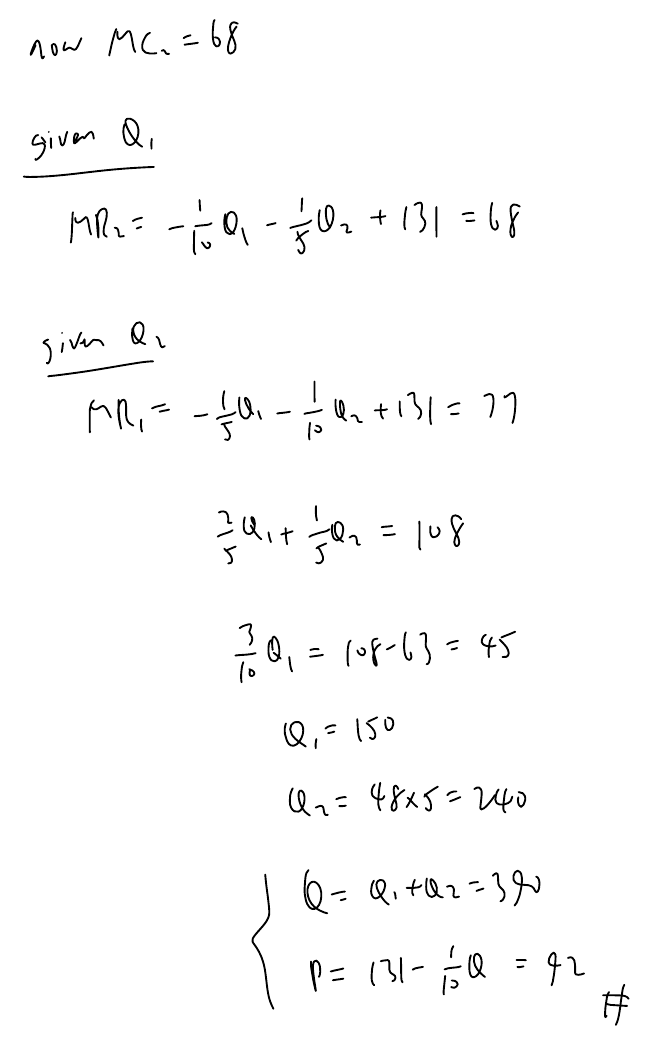 now MC₂ = 68
given Q₁
MR₂ = -1/10 Q₁ - 1/5 Q₂ + 131 = 68
given Q₂
MR₁ = -1/5 Q₁ - 1/10 Q₂ + 131 = 77
2/5 Q₁ + 1/5 Q₂ = 108
3/10 Q₁ = 108-63 = 45
Q₁ = 150
Q₂ = 48×5 = 240
Q = Q₁+Q₂ = 390
P = 131 - 1/10 Q = 92 #